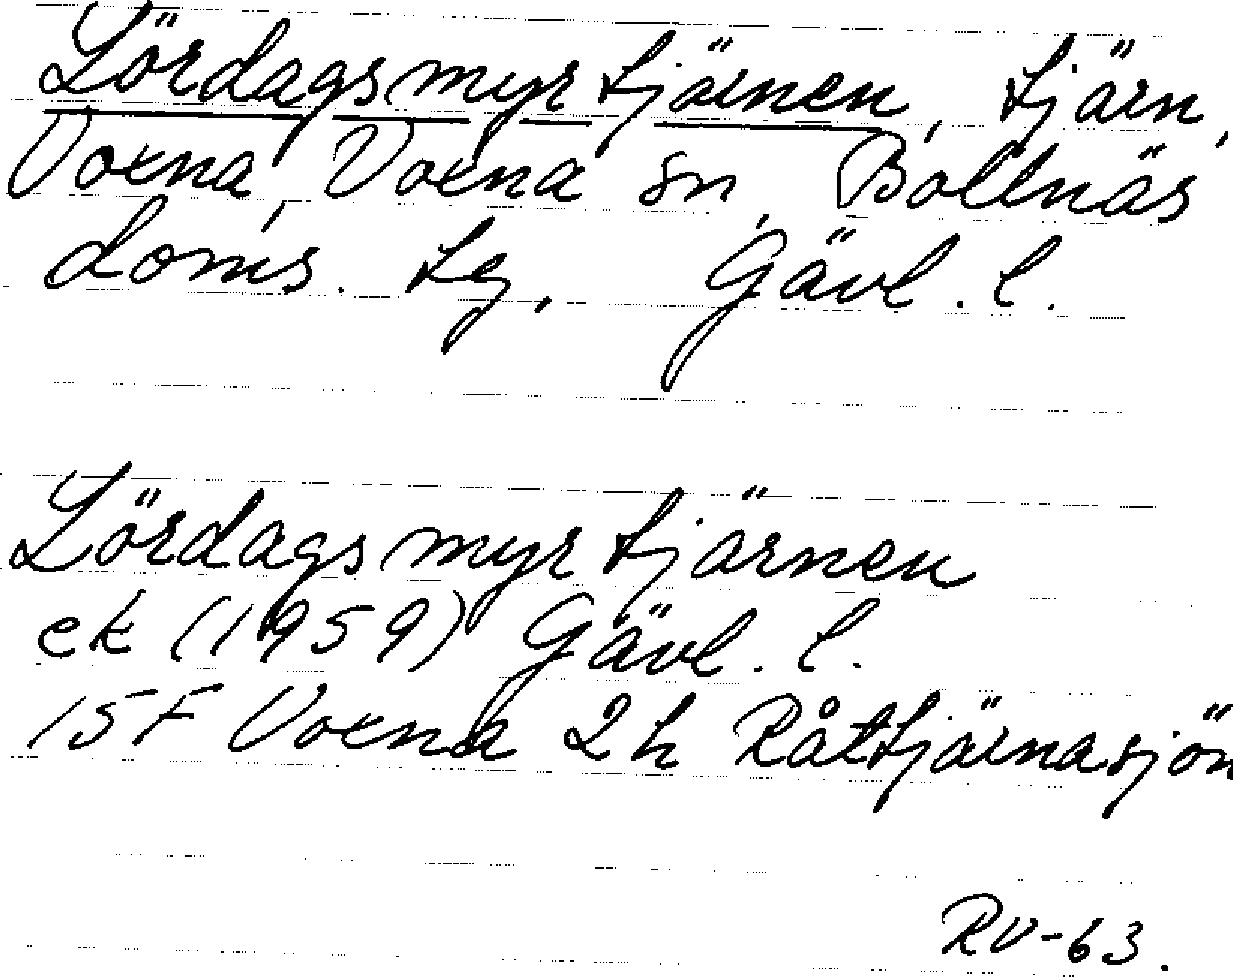 Lördagsmyrtjärnen, tjärn,
Voxna, Voxna sn, Bollnäs
doms. tg, Gävl. l.
Lördagsmyrtjärnen
ek (1959) Gävl. l.
15F Voxna 2h Råttjärnasjön
RV-63.